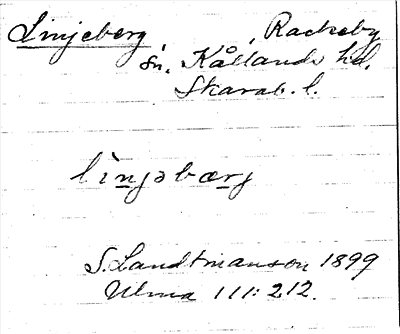 Linjeberg, Rackeby
sn. Kållands hd.
Skarab. l.
lìnjəbærj
S. Landtmanson 1899
Ulma 111:212.